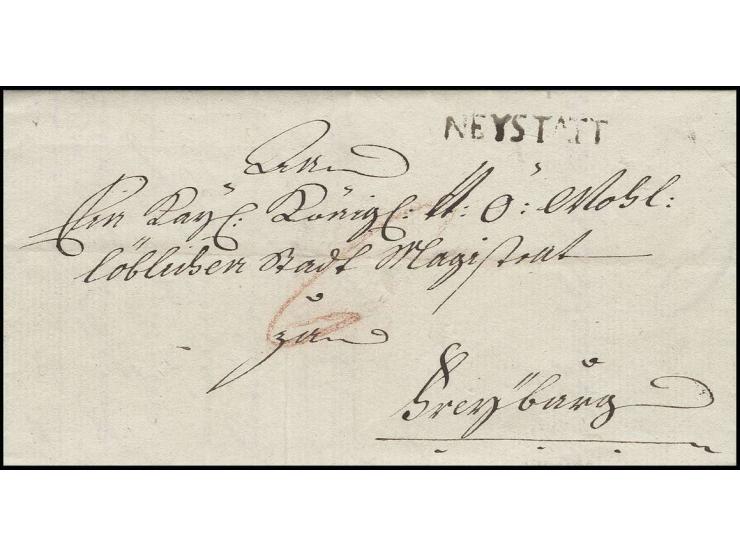 NEYSTATT
An
Ein Kayl: Königl: V: Ö: Wohl:
löblichen Stadt Magistrat
zu
Freyburg
6